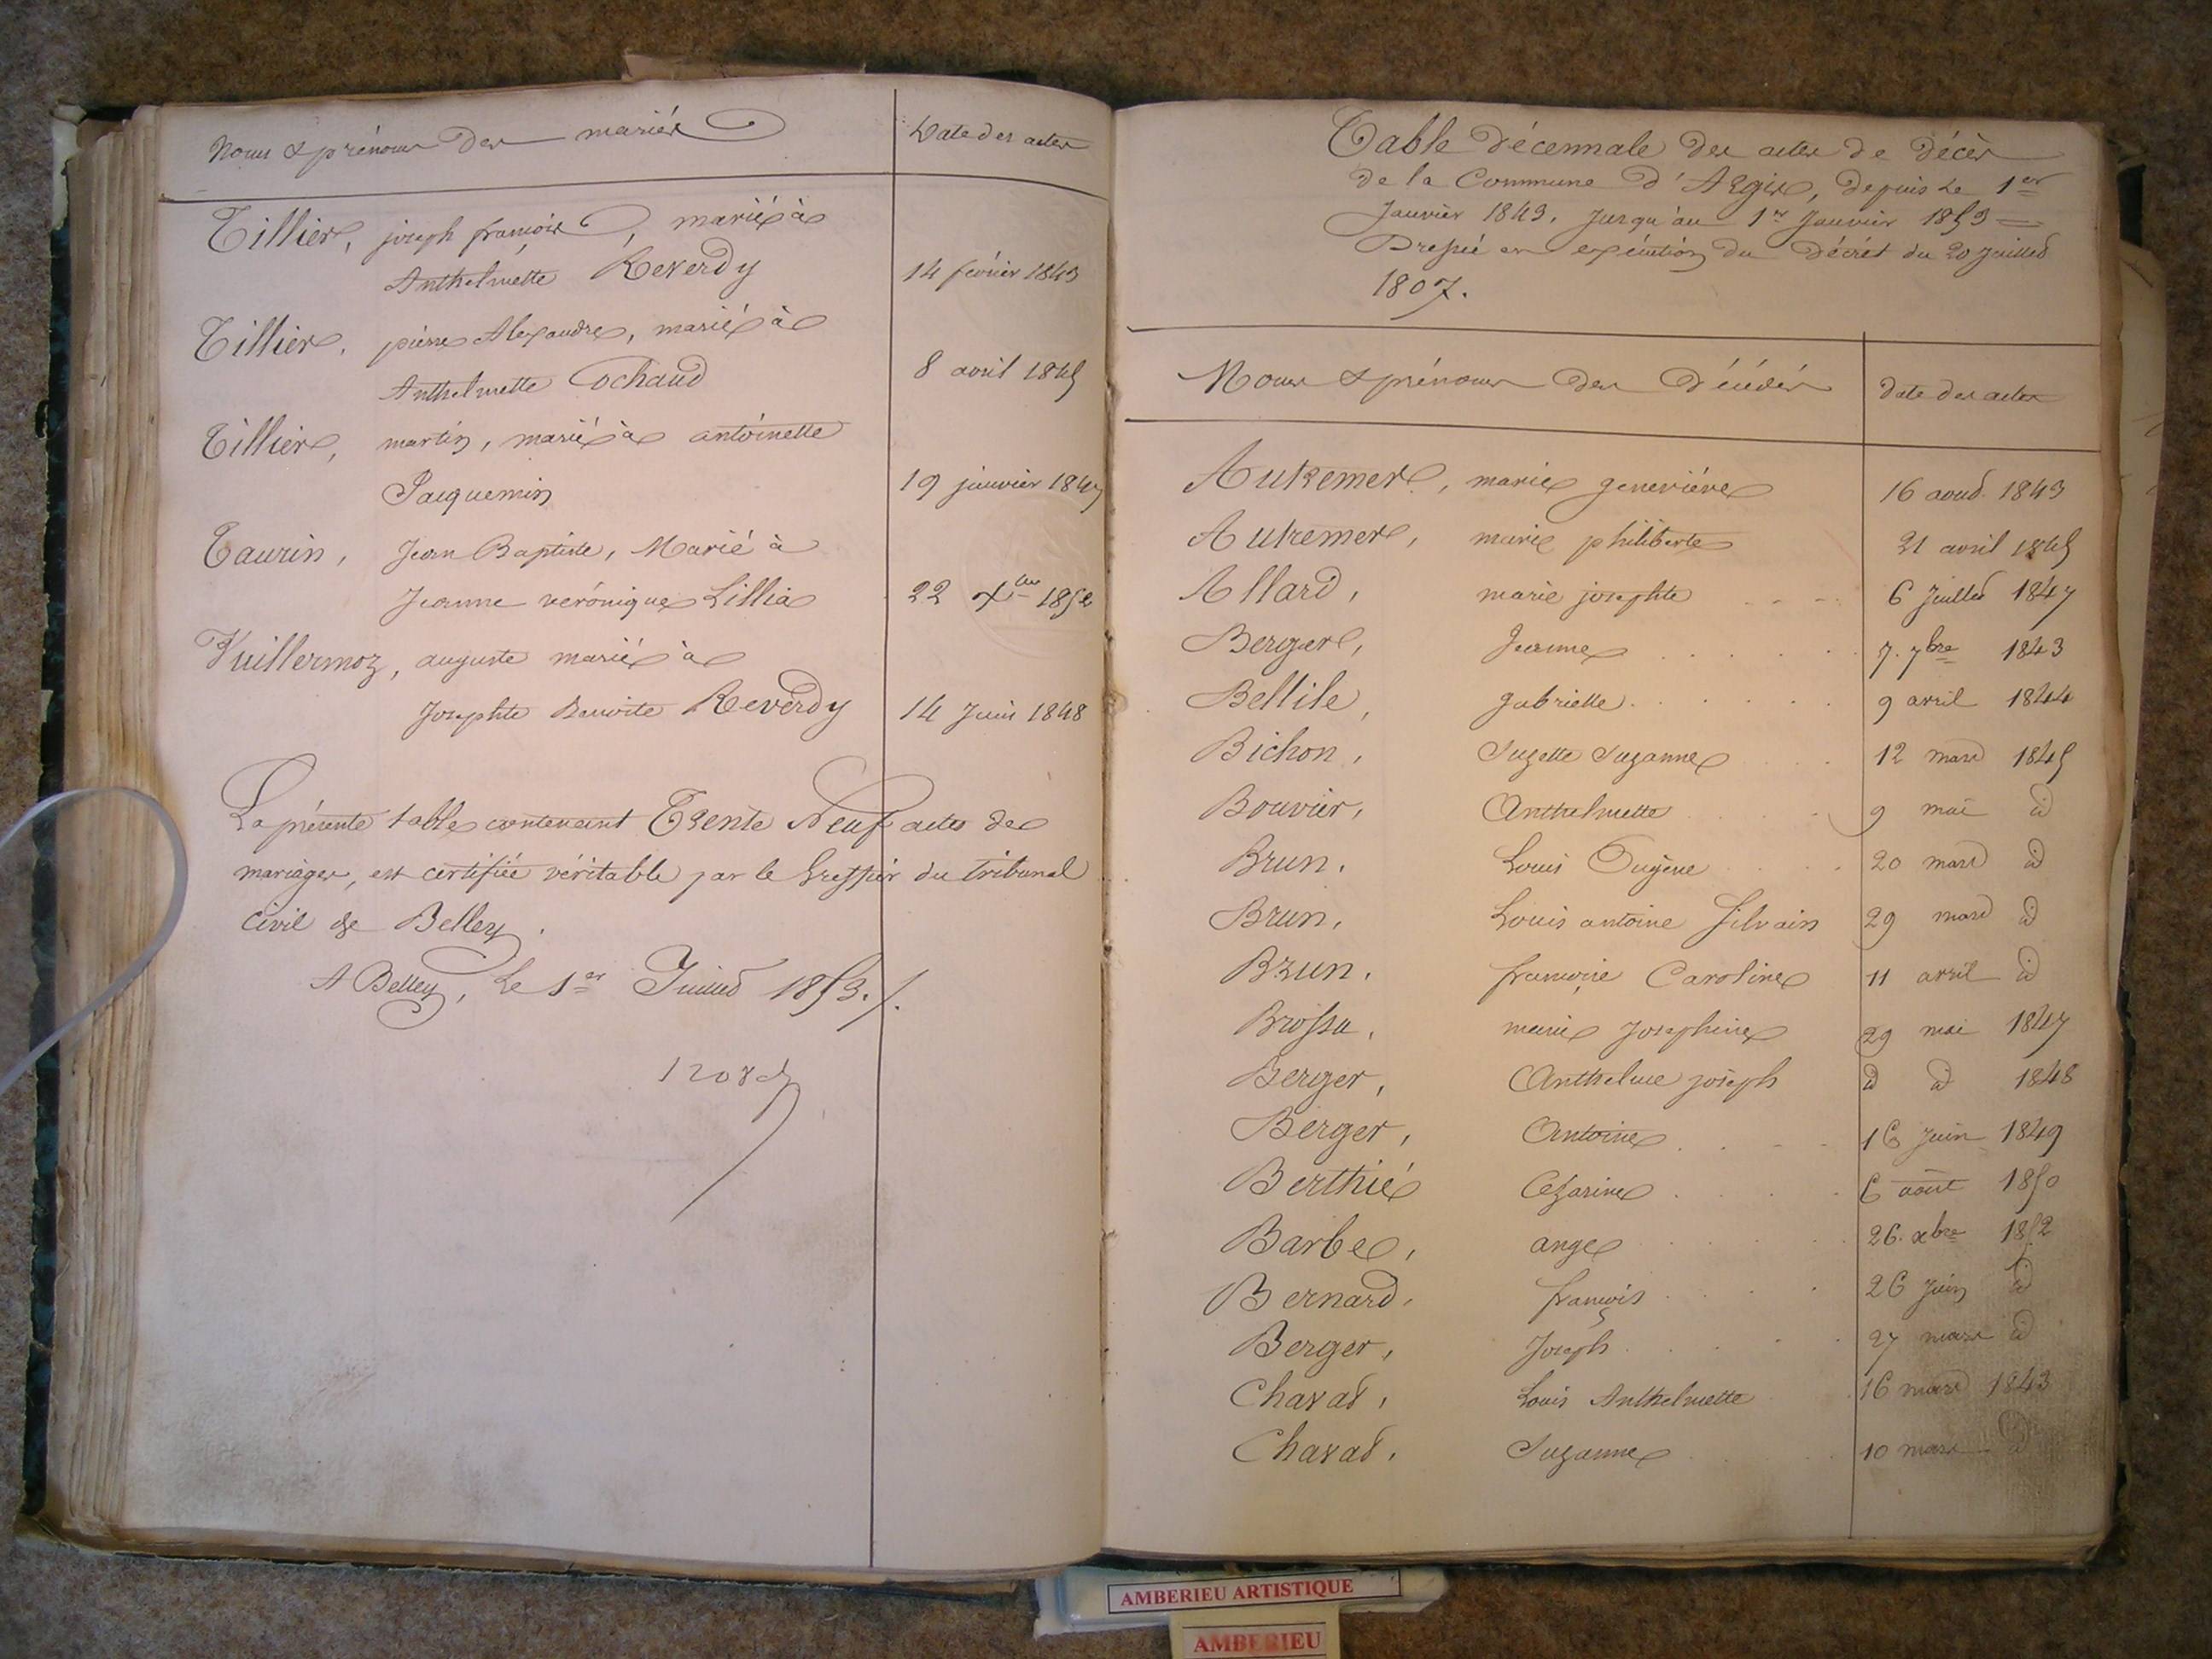 Noms & prénoms des mariés
Date des actes
Tillier, joseph françois, marié à
Anthelmette Reverdy
14 février 1843
Tillier, pierre Alexandre, marié à
Anthelmette Cochaud
8 avril 1845
Tillier, martin, marié à antoinette
Jacquemin
19 janvier 1847
Taurin, Jean Baptiste, Marié à
Jeanne véronique Lillia
22 Xbre 1852
Vuillermoz, auguste marié à
Josephte Benoite Reverdy
14 Juin 1848
La présente table contenant Trente Neuf actes de
mariages, est certifiée véritable par le Greffier du tribunal
civil de Belley.
A Belley, Le 1er Juillet 1853./.
Table décennale des actes de décès
de la Commune d'Argis, depuis Le 1er
Janvier 1843. Jusqu'au 1er Janvier 1853 =
Dressée en exécution du Décret du 20 juillet
1807.
Noms & prénoms des décédés
date des actes
Autremer, marie geneviève 16 aout 1843
Autremer, marie philiberte 21 avril 1845
Allard, marie josephte 6 Juillet 1847
Berger, Jeanne 7. 7bre 1843
Bellile, gabrielle 9 avril 1844
Bichon, Suzette Suzanne 12 mars 1845
Bouvier, Anthelmette 9 mai id
Brun, Louis Eugène 20 mars id
Brun, Louis antoine Silvain 29 mars id
Brun, françoise Caroline 11 avril id
Brossu, marie Josephine 29 mai 1847
Berger, Anthelme joseph id id 1848
Berger, Antoine 16 juin 1849
Berthié Cezarine 6 août 1850
Barbe, ange 26. xbre 1852
Bernard, françois 26 juin id
Berger, Joseph 27 mars id
Chavat, Louis Anthelmette 16 mars 1843
Chavat, Suzanne 10 mars id
AMBERIEU ARTISTIQUE
AMBERIEU